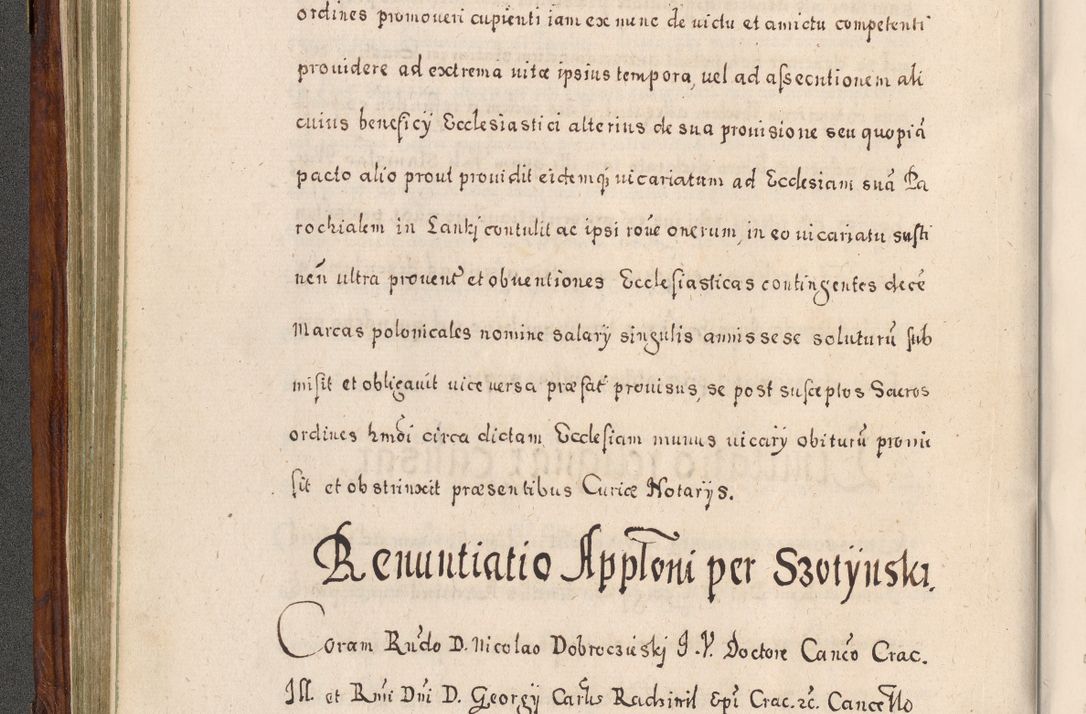 ordines promoveri cupienti iam ex nunc de victu et amictu competenti
providere ad extrema vitæ ipsius tempora, vel ad assecutionem ali
cuius beneficij Ecclesiastici alterius de sua provisione seu quopiã
pacto alio prout providit eidemq́ vicariatum ad Ecclesiam suã Pa
rochialem in Lankj contulit ac ipsi roñe onerum, in eo vicariatu susti
neñ ultra provent et obventiones Ecclesiasticas contingentes decẽ
Marcas polonicales nomine salarij singulis annis sese soluturũ sub
misit et obligavit vice versa præfat provisus, se post susceptos Sacros
ordines hmõi circa dictam Ecclesiam munus vicarij obiturũ promi
sit et obstrinxit præsentibus Curiæ Notarijs.
Renuntiatio Appłoni per Szotÿnski.
Coram Rñdo D. Nicolao Dobroczieskj J. V. Doctore Canco Crac.
Ill. et Rmi Dni D. Georgij Carlis Radziwil Epĩ Crac. zc. Cancełło